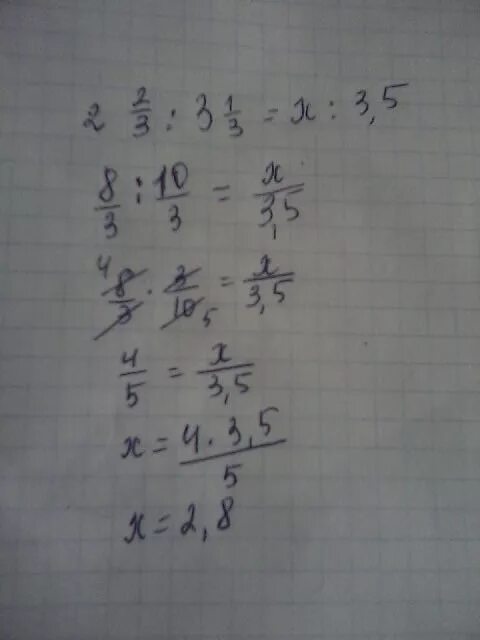 2 2/3 : 3 1/3 = x : 3,5
8/3 : 10/3 = x/3,5
4 8/3 · 3/10 5 = x/3,5
4/5 = x/3,5
x = 4·3,5/5
x = 2,8